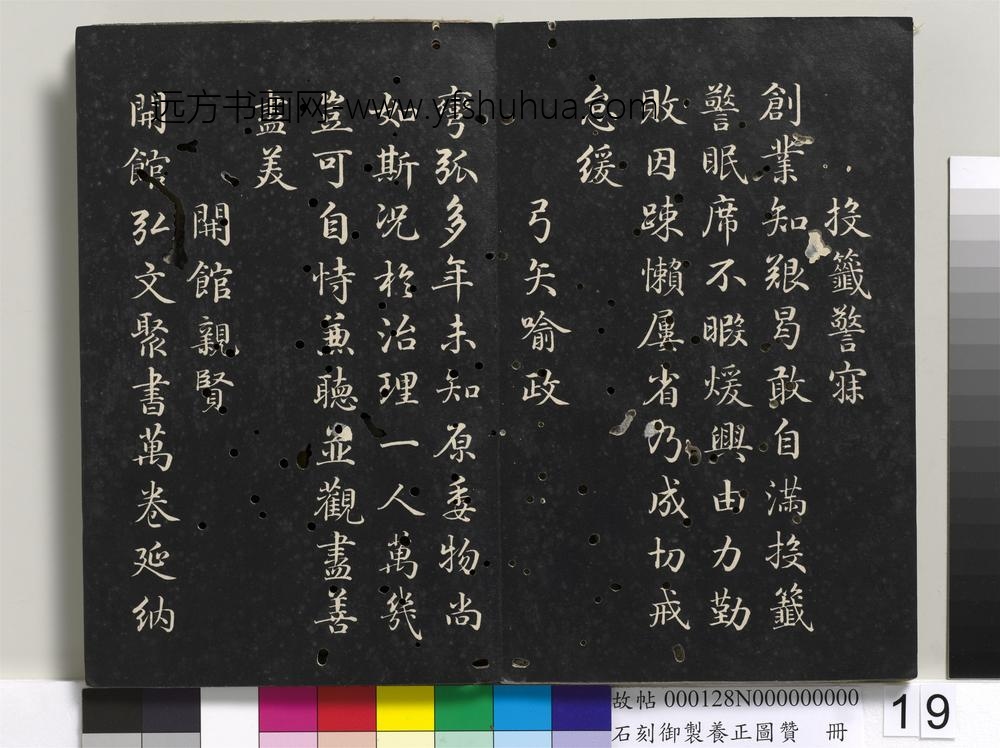 投籤警寐
創業知艱曷敢自滿投籤
警眠席不暇煖興由力勤
敗因踈懶屢省乃成切戒
怠緩
弓矢喻政
弯弧多年未知原委物尚
如斯况於治理一人萬幾
豈可自恃兼聴並觀盡善
盡美
開館親賢
開館弘文聚書萬卷延納
远方书画网-www.yfshuhua.com
故帖 000128N000000000
石刻御製養正圖贊 冊
19